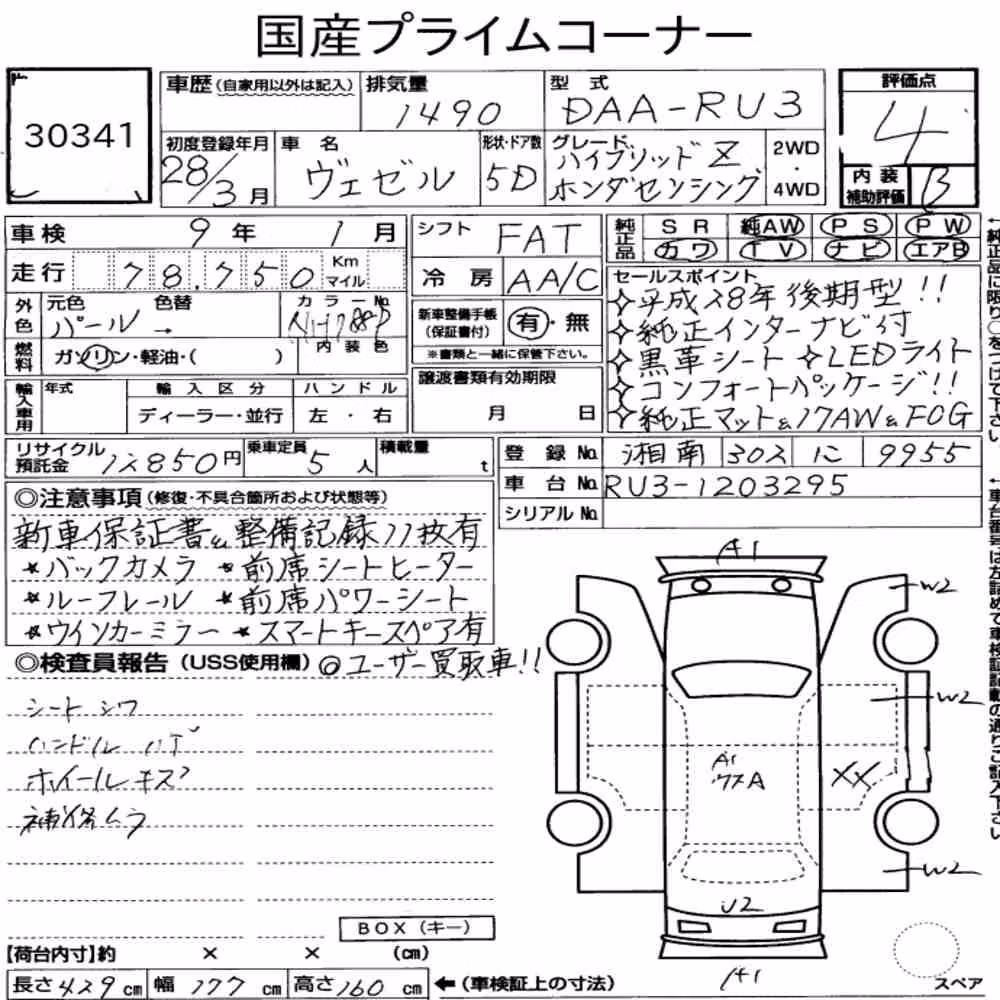 国産プライムコーナー
30341
車歴(自家用以外は記入) 排気量 1490 型式 DAA-RU3
評価点 4
初度登録年月 28/3月 車名 ヴェゼル 形状・ドア数 5D グレード ハイブリッド Z ホンダセンシング 2WD・4WD
内装補助評価 B
車検 9年 1月 シフト FAT
純正品 SR 純AW PS PW
カワ TV ナビ エアB
走行 78,750 Km マイル
冷房 AA/C
外色 元色 パール → 色替 カラーNo. NH788P
内装色
燃料 ガソリン・軽油・( )
新車整備手帳(保証書付) 有・無
※書類と一緒に保管下さい。
輸入車用 年式 輸入区分 ディーラー・並行 ハンドル 左・右
譲渡書類有効期限 月 日
セールスポイント
平成28年後期型!!
純正インターナビ付
黒革シート LEDライト
コンフォートパッケージ!!
純正マット&17AW&FOG
リサイクル預託金 12850円 乗車定員 5人 積載量 t
登録No. 湘南 302 に 9955
車台No. RU3-1203295
シリアルNo.
←純正品に限り○をつけて下さい。
←車台番号は左詰めで車検証記載の通りご記入下さい。
◎注意事項(修復・不具合箇所および状態等)
新車保証書&整備記録11枚有
★バックカメラ ★前席シートヒーター
★ルーフレール ★前席パワーシート
★ウインカーミラー ★スマートキースペア有
◎検査員報告(USS使用欄) ◎ユーザー買取車!!
シート シワ
ハンドル ハゲ
ホイールキズ
補修ムラ
A1
W2
W2
A1
XX
W2
U2
A1
BOX(キー)
【荷台内寸】約 × × (cm)
長さ429cm 幅177cm 高さ160cm ←(車検証上の寸法)
スペア